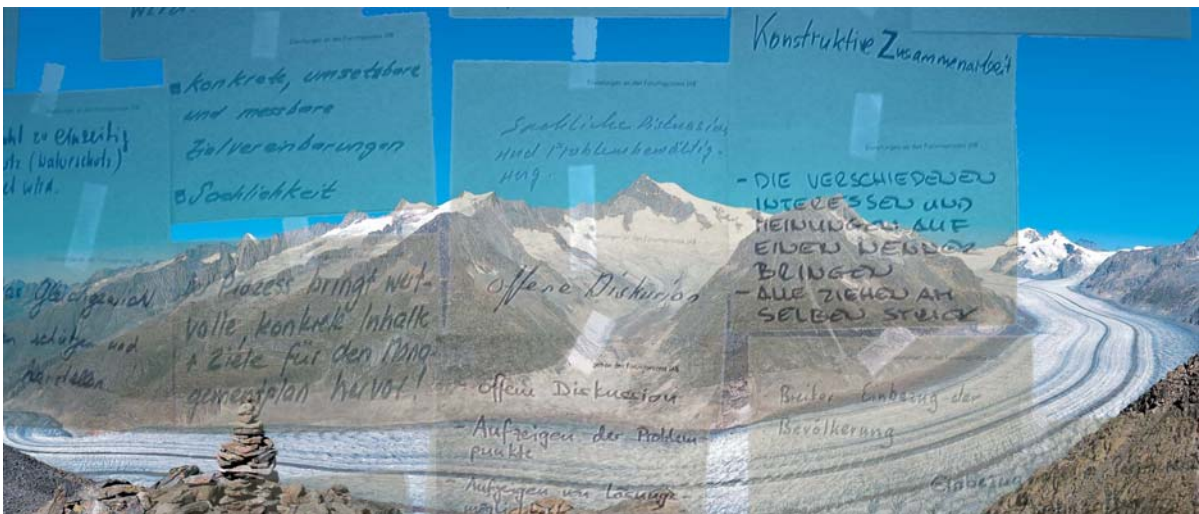 Konstruktive Zusammenarbeit
• Konkrete, umsetzbare
und messbare
Zielvereinbarungen
• Sachlichkeit
zu einseitig
wird.
Sachliche Diskussion
und Problembewältig-
ung.
- DIE VERSCHIEDENEN
INTERESSEN UND
MEINUNGEN AUF
EINEN NENNER
BRINGEN
- ALLE ZIEHEN AM
SELBEN STRICK
Gleichgewicht
schützen und
Prozess bringt wert-
volle, konkrete Inhalte
+ Ziele für den Mana-
gementplan hervor!
offene Diskussion
- offene Diskussion
- Aufzeigen der Problem-
punkte
- Aufzeigen von Lösungs-
Breiter Einbezug der
Bevölkerung
Einbezug